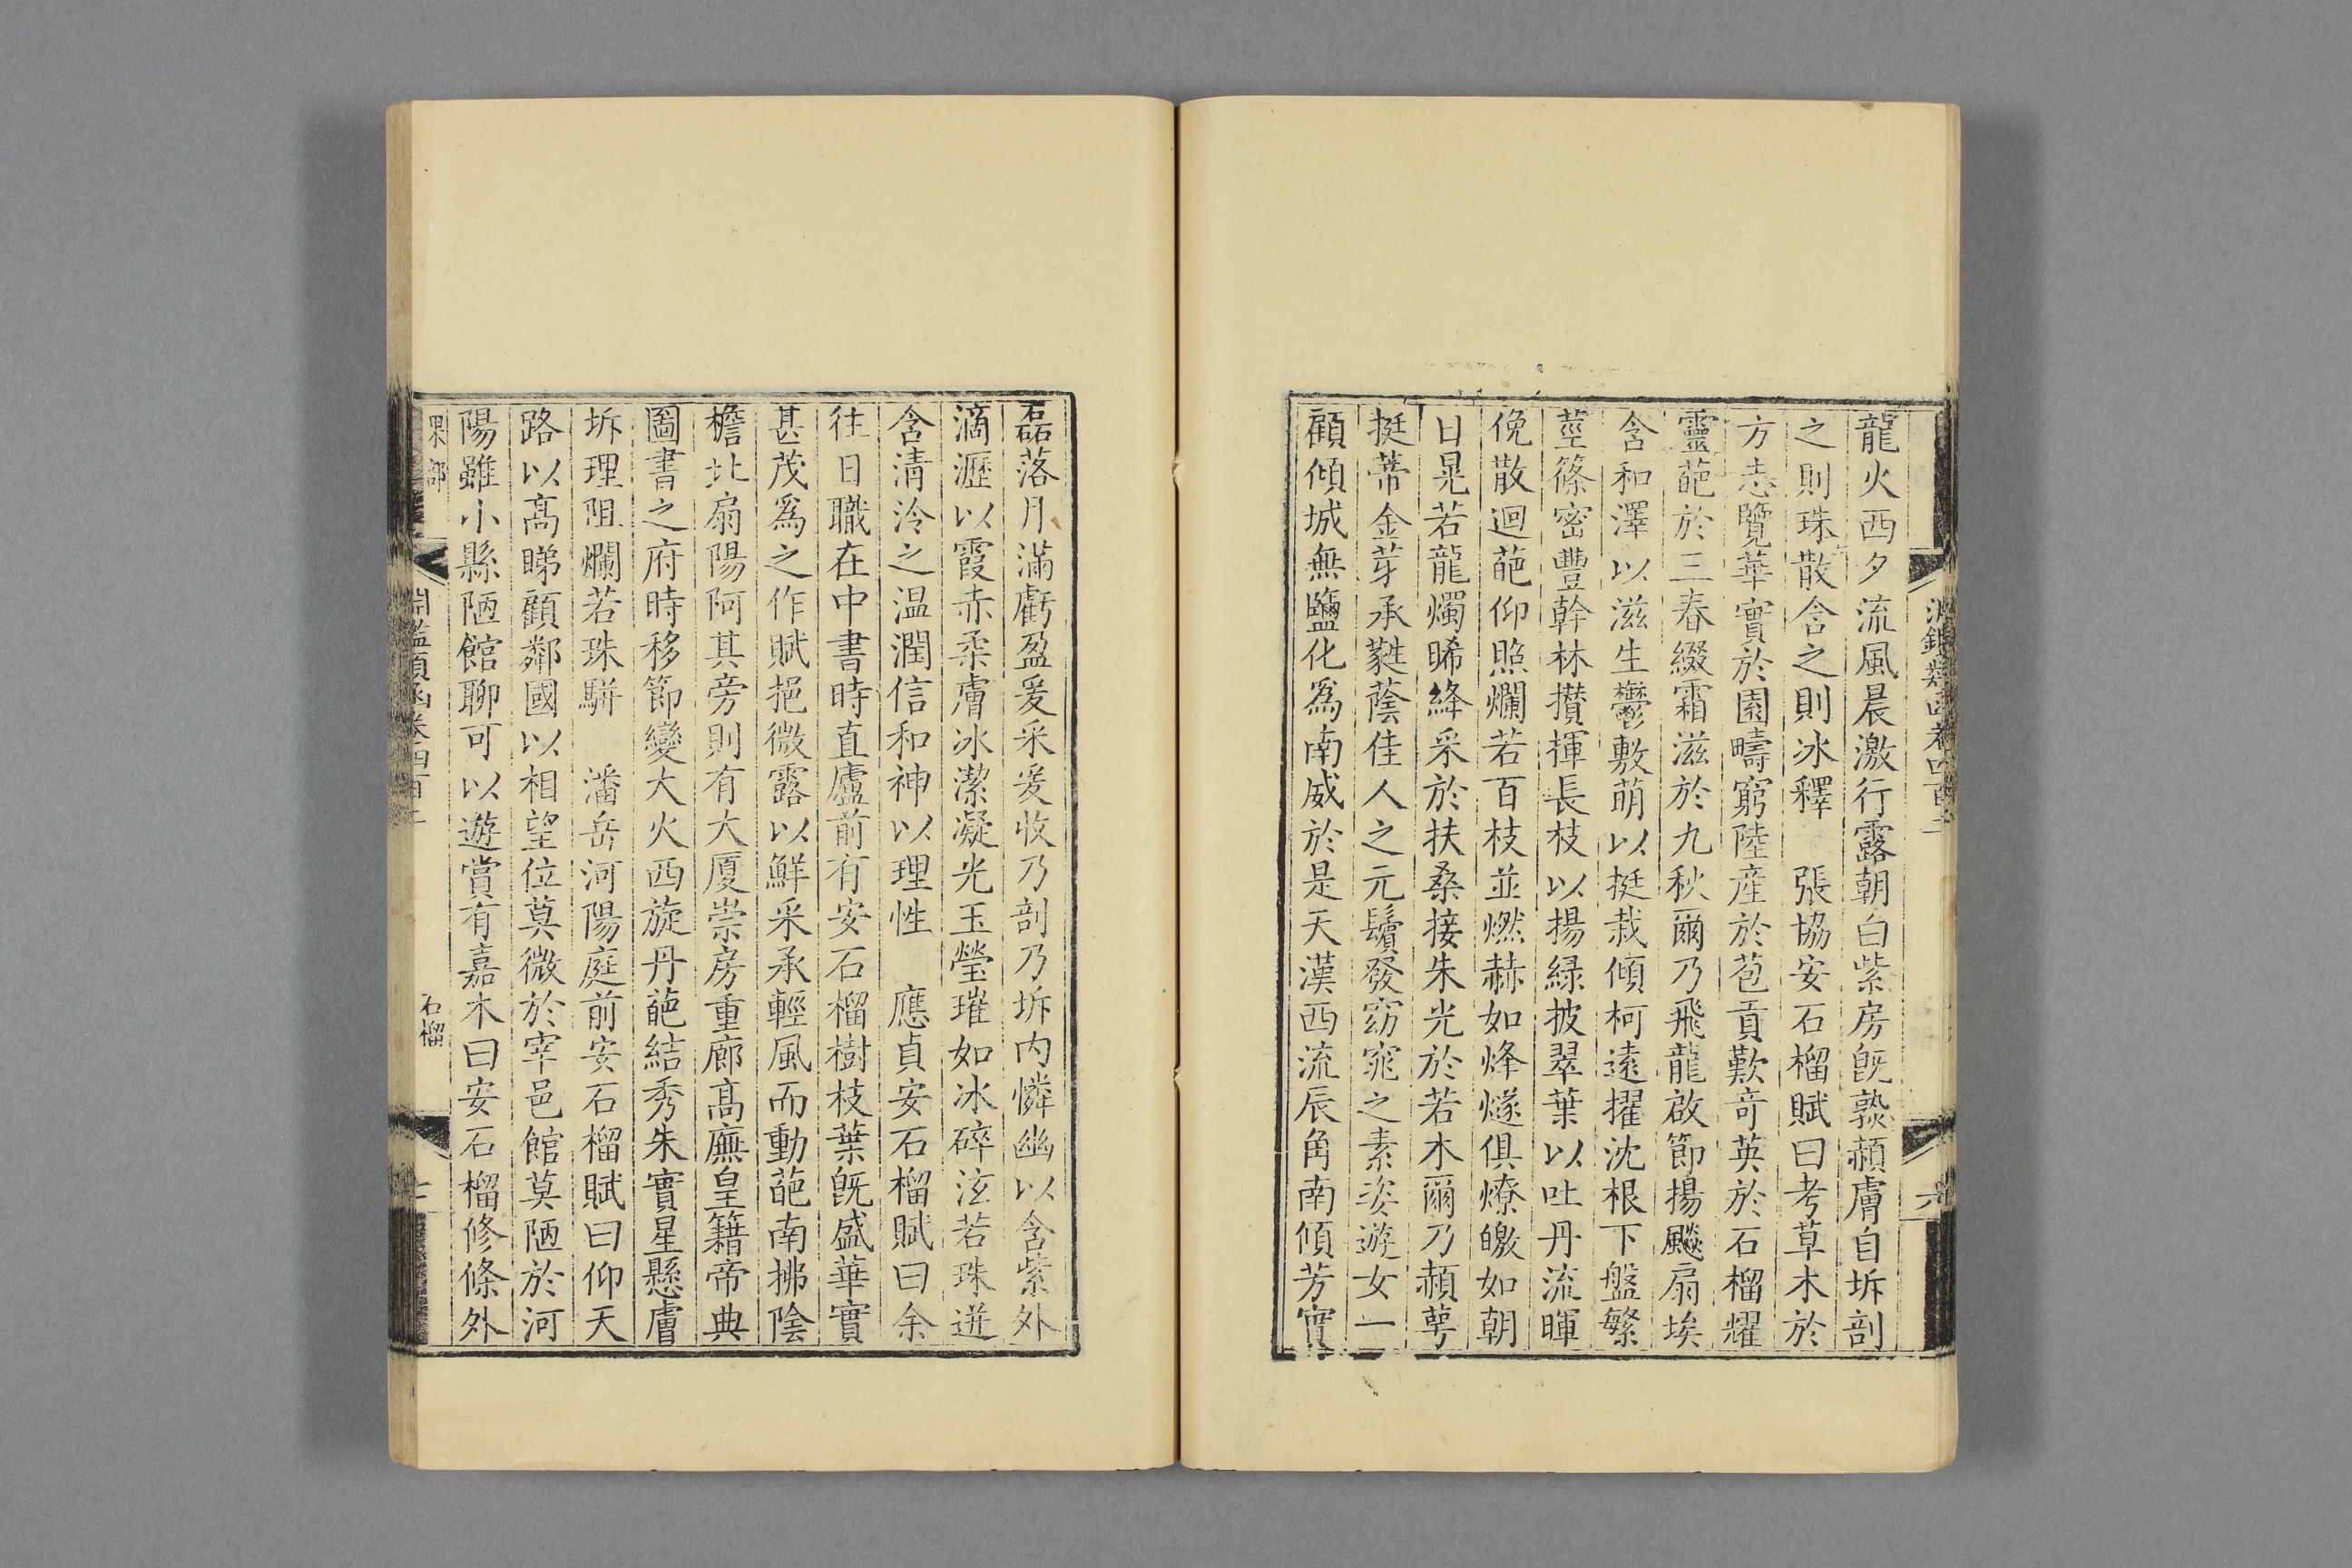 龍火西夕流風晨激行露朝白紫房旣熟赬膚自坼剖
之則珠散含之則冰釋　張協安石榴賦曰考草木於
方志覽華實於園疇窮陸産於苞貢歎奇英於石榴耀
靈葩於三春綴霜滋於九秋爾乃飛龍啟節揚飈扇埃
含和澤以滋生鬱敷萌以挺栽傾柯遠擢沈根下盤繁
莖篠密豐幹林攢揮長枝以揚緑披翠葉以吐丹流暉
俛散迴葩仰照爛若百枝並燃赫如烽燧俱燎皦如朝
日晃若龍燭晞絳采於扶桑接朱光於若木爾乃赬萼
挺蔕金芽承蕤蔭佳人之元鬢發窈窕之素姿遊女一
顧傾城無鹽化爲南威於是天漢西流辰角南傾芳實
磊落月滿虧盈爰采爰收乃剖乃坼内憐幽以含紫外
滴瀝以霞赤柔膚冰潔凝光玉瑩璀如冰碎泫若珠迸
含清泠之温潤信和神以理性　應貞安石榴賦曰余
往日職在中書時直廬前有安石榴樹枝葉旣盛華實
甚茂爲之作賦挹微露以鮮采承輕風而動葩南拂陰
檐北扇陽阿其旁則有大厦崇房重廊高廡皇籍帝典
圖書之府時移節變大火西旋丹葩結秀朱實星懸膚
坼理阻爛若珠駢　潘岳河陽庭前安石榴賦曰仰天
路以高睇顧鄰國以相望位莫微於宰邑館莫陋於河
陽雖小縣陋館聊可以遊賞有嘉木曰安石榴修條外
果部　淵鑑類函卷四百二　石榴